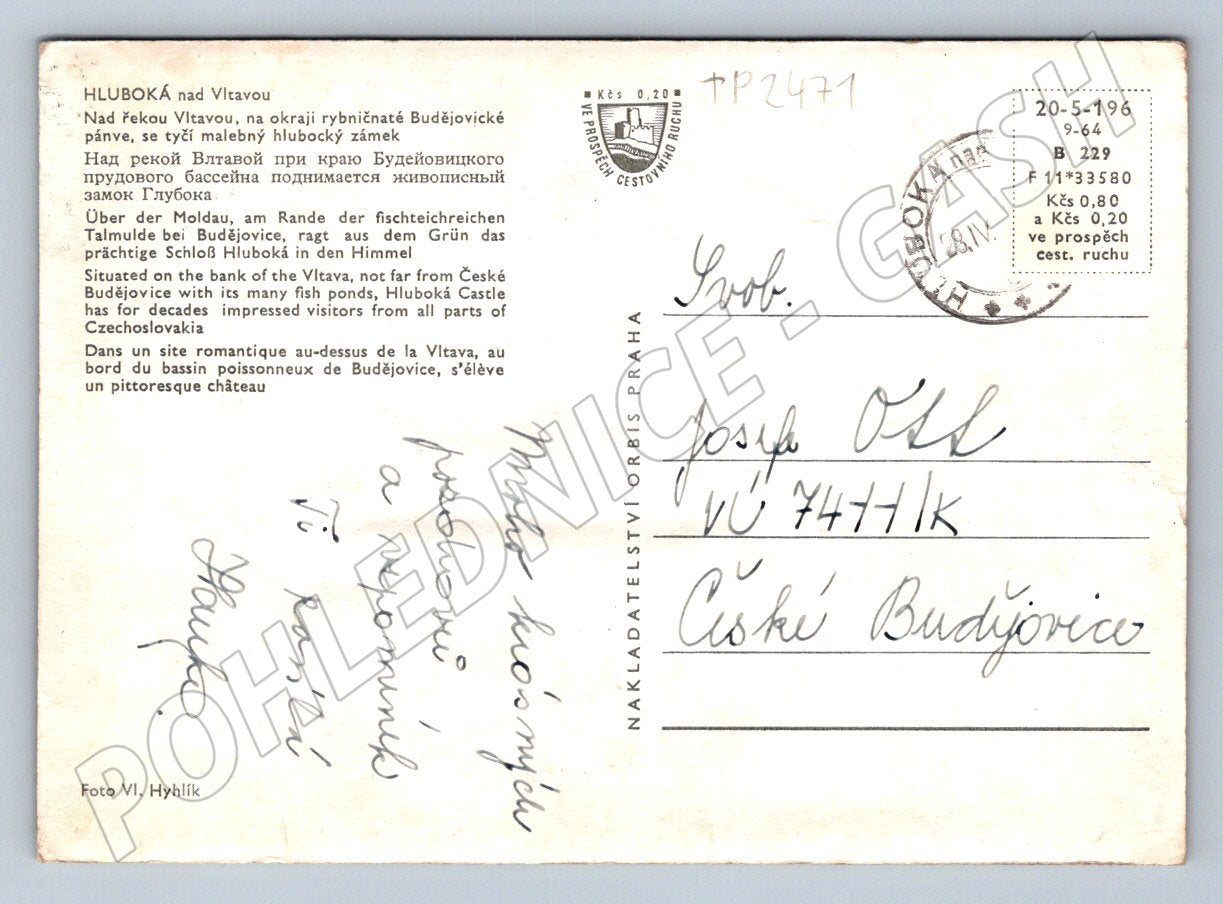 HLUBOKÁ nad Vltavou
Nad řekou Vltavou, na okraji rybničnaté Budějovické
pánve, se tyčí malebný hlubocký zámek
Над рекой Влтавой при краю Будейовицкого
прудового бассейна поднимается живописный
замок Глубока
Über der Moldau, am Rande der fischteichreichen
Talmulde bei Budějovice, ragt aus dem Grün das
prächtige Schloß Hluboká in den Himmel
Situated on the bank of the Vltava, not far from České
Budějovice with its many fish ponds, Hluboká Castle
has for decades impressed visitors from all parts of
Czechoslovakia
Dans un site romantique au-dessus de la Vltava, au
bord du bassin poissonneux de Budějovice, s'élève
un pittoresque château
Mnoho krásných
pozdravů
a vzpomínek
Ti
Foto Vl. Hyhlík
NAKLADATELSTVÍ ORBIS PRAHA
Kčs 0,20
VE PROSPĚCH CESTOVNÍHO RUCHU
TP2471
HLUBOKÁ nad
28.IV.
20-5-196
9-64
B 229
F 11*33580
Kčs 0,80
a Kčs 0,20
ve prospěch
cest. ruchu
Svob.
Josef Ott
VÚ 7411/K
České Budějovice
POHLEDNICE - GASH